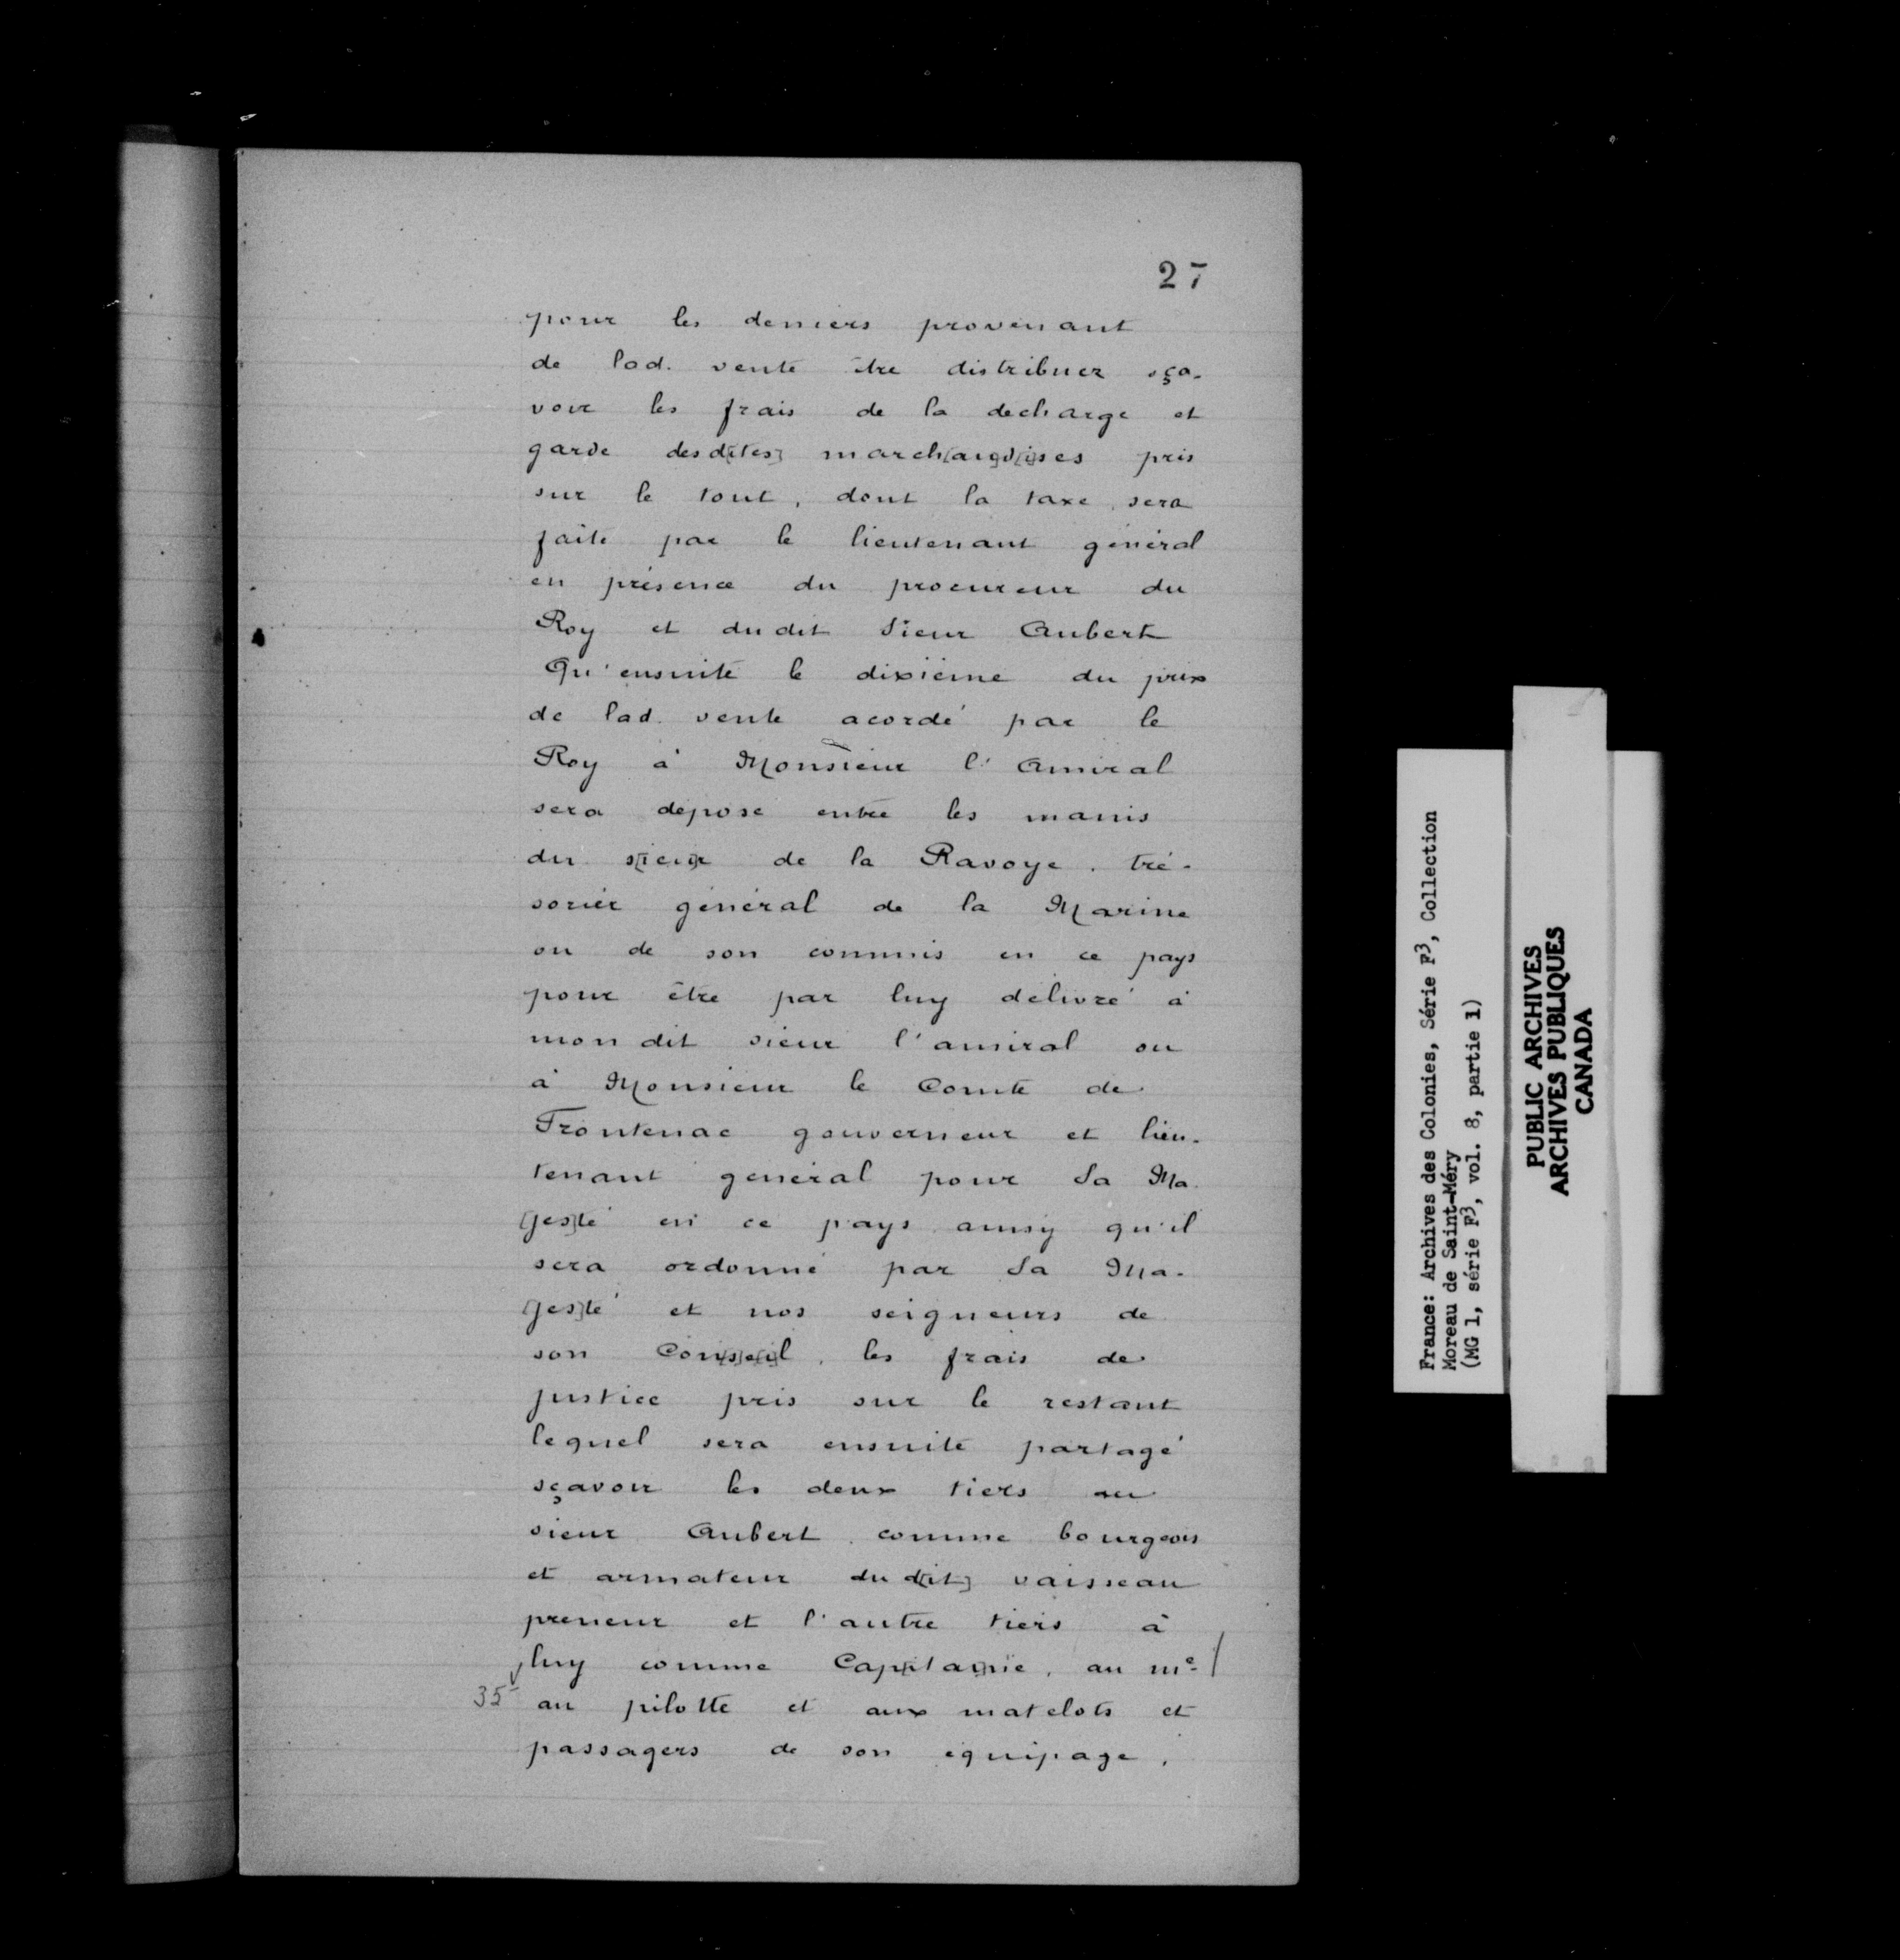 27
pour les deniers provenant
de lad. vente être distribuez sça-
voir les frais de la decharge et
garde desd[ites] march[an]d[i]ses pris
sur le tout, dont la taxe sera
faite par le lieutenant général
en présence du procureur du
Roy et dudit Sieur Aubert
Qu'ensuite le dixième du prix
de lad. vente acordé par le
Roy à Monsieur l'Amiral
sera déposé entre les mains
du s[ieu]r de la Ravoye, tré-
sorier général de la Marine
ou de son commis en ce pays
pour être par luy délivré à
mon dit sieur l'amiral ou
à Monsieur le Comte de
Frontenac gouverneur et lieu-
tenant général pour Sa Ma-
[jes]té en ce pays ainsy qu'il
sera ordonné par Sa Ma-
[jes]té et nos seigneurs de
son Con[se]il, les frais de
justice pris sur le restant
lequel sera ensuite partagé
sçavoir les deux tiers au
sieur Aubert comme bourgeois
et armateur dud[it] vaisseau
preneur et l'autre tiers à
luy comme Cap[it]a[i]ne, au me
35 au pilotte et aux matelots et
passagers de son équipage,
France: Archives des Colonies, Série F3, Collection
Moreau de Saint-Méry
(MG 1, série F3, vol. 8, partie 1)
PUBLIC ARCHIVES
ARCHIVES PUBLIQUES
CANADA